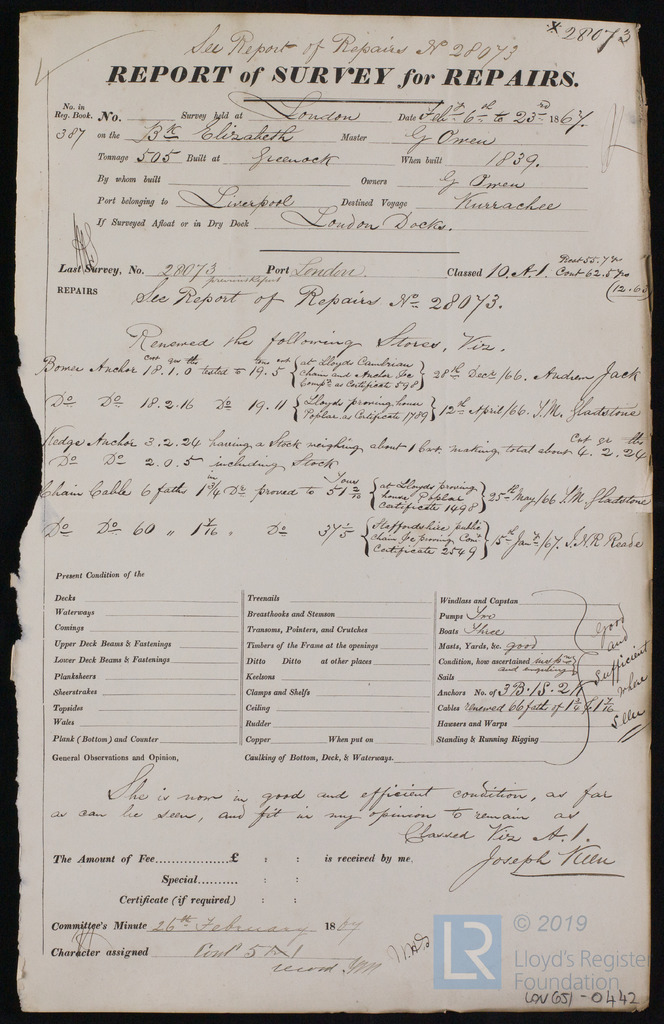 * 28073
See Report of Repairs No 28073
REPORT of SURVEY for REPAIRS.
No. in Reg. Book. No. Survey held at London Date Feby 6th to 23rd 1867.
387 on the Bk Elizabeth Master G Owen
Tonnage 505 Built at Greenock When built 1839.
By whom built Owners G Owen
Port belonging to Liverpool Destined Voyage Kurrachee
If Surveyed Afloat or in Dry Dock London Docks.
Last Survey, No. 28073 Port London. Classed 10. A.1.
previous Report
(12.63)
REPAIRS See Report of Repairs No 28073.
Renewed the following Stores, Viz.
Bower Anchor 18.1.0 tested to 19.5 { at Lloyds Cambrian Chain and Anchor Compy as Certificate 598 } 28th Decr/66. Andrew Jack
Do Do 18.2.16 Do 19.11 { Lloyds proving house Poplar as Certificate 1789 } 12th April/66. J.M. Gladstone
Kedge Anchor 3.2.24 having a Stock weighing about 1 cwt. making total about 4.2.24
Do Do 2.0.5 including Stock
Chain Cable 6 faths 1 3/4 in Dr proved to { at Lloyds proving house Poplar Certificate 1498 } 25th May/66 J.M. Gladstone
Do Do 60 " 1 7/16 " Do { Staffordshire public chain &c proving Certificate 2549 } 15th Jany/67. J.H.R Reade
Present Condition of the
Decks
Waterways
Comings
Upper Deck Beams & Fastenings
Lower Deck Beams & Fastenings
Planksheers
Sheerstrakes
Topsides
Wales
Plank (Bottom) and Counter
Treenails
Breasthooks and Stemson
Transoms, Pointers, and Crutches
Timbers of the Frame at the openings
Ditto Ditto at other places
Keelsons
Clamps and Shelfs
Ceiling
Rudder
Copper When put on
Windlass and Capstan
Pumps Two
Boats Three
Masts, Yards, &c. good
Condition, how ascertained
and enquiry
Sails
Anchors No. of 3B. 1S. 2K
Cables renewed 66 faths of 1 3/4 & 1 7/16
Hawsers and Warps
Standing & Running Rigging
good and sufficient where seen
General Observations and Opinion, Caulking of Bottom, Deck, & Waterways.
She is now in good and efficient condition, as far
as can be seen, and fit in my opinion to remain as
Classed Viz A.1.
The Amount of Fee £ : : is received by me,
Joseph Keen
Special : :
Certificate (if required) : :
Committee's Minute 26th February 1867
Character assigned
LR
© 2019
Lloyd's Register
Foundation
LON651-0442